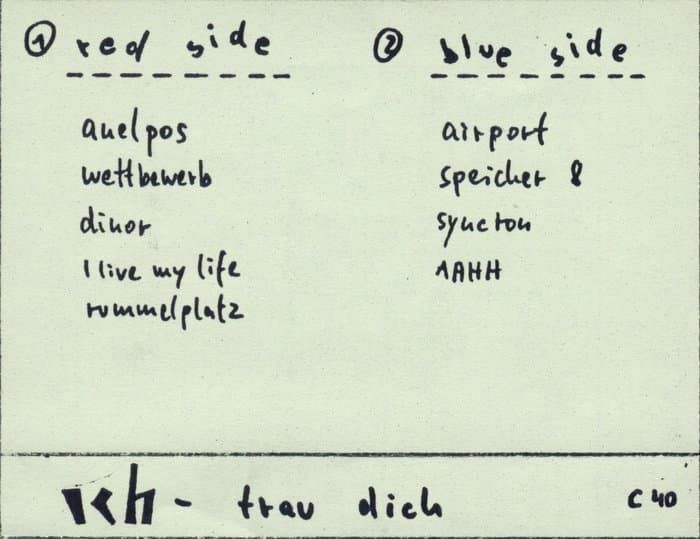 ① red side
auelpos
wettbewerb
dinor
I live my life
rummelplatz
② blue side
airport
speicher 8
syncton
1AHH
ich - trau dich
C40